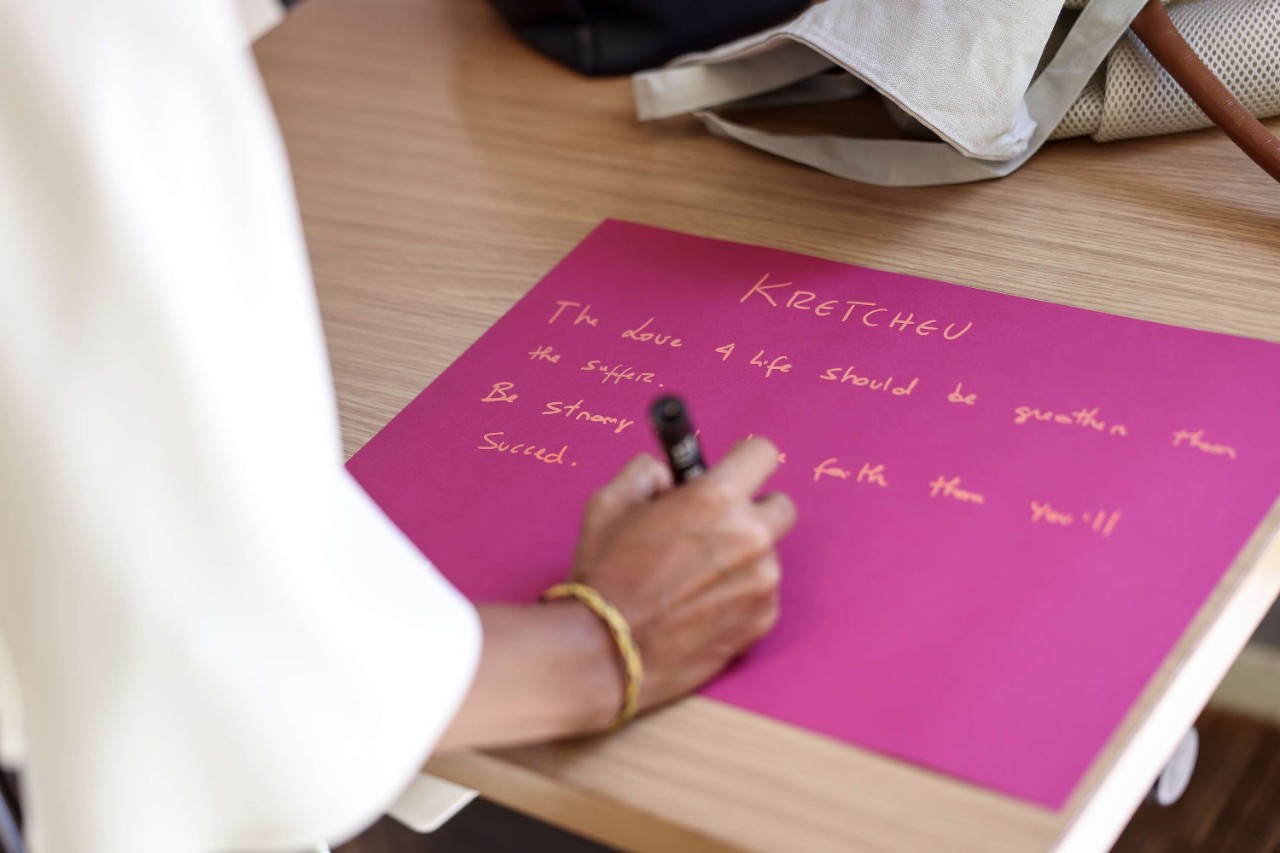 KRETCHEU
The Love 4 life should be greathen them
the suffer.
Be strong faith then you'll
Succed.